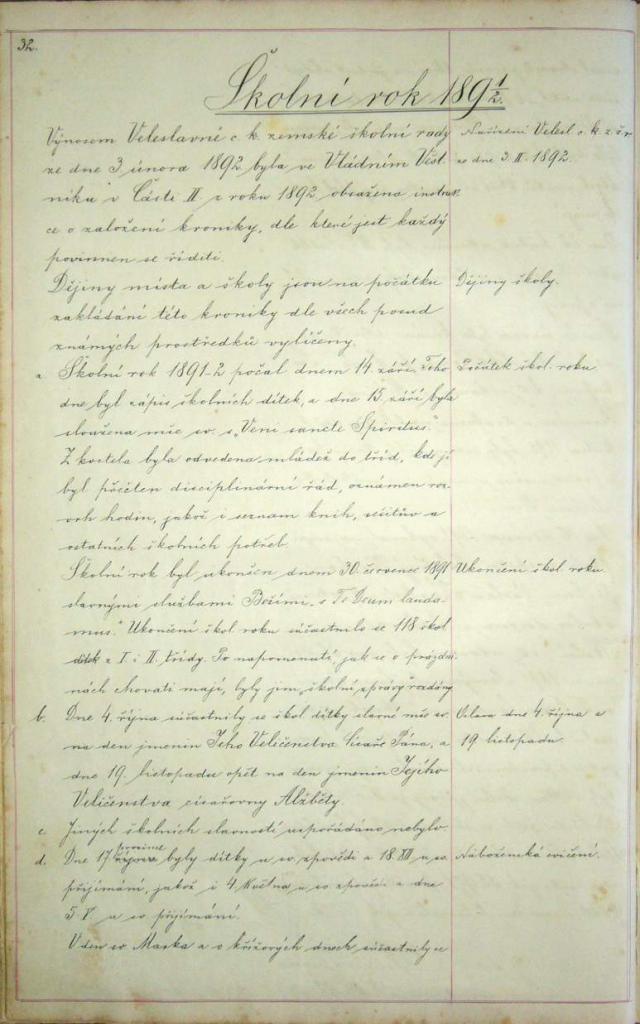 32.
Školní rok 189 1/2.
Výnosem Veleslavné c. k. zemské školní rady
Nařízení Velesl. c. k. z. š. r.
ze dne 3 února 1892 byla ve Vládním Věst
ze dne 3. II. 1892.
níku v Části II z roku 1892 obsažena instruk
ce o založení kroniky, dle které jest každý
povinnen se říditi.
Dějiny místa a školy jsou na počátku
Dějiny školy.
zakládání této kroniky dle všech posud
známých prostředků vylíčeny.
a Školní rok 1891-2 počal dnem 14 září. Toho
Počátek škol. roku
dne byl zápis školních dítek, a dne 15. září byla
sloužena mše sv. s „Veni sancte Spiritus."
Z kostela byla odvedena mládež do tříd, kde jí
byl přečten disciplinární řád, oznámen roz-
vrh hodin, jakož i seznam knih, sešitův a
ostatních školních potřeb.
Školní rok byl ukončen dnem 30. července 1891
Ukončení škol. roku
slavnými službami Božími s „Te Deum lauda-
mus." Ukončení škol roku súčastnilo se 118 škol
dítek z I. i II. třídy. Po napomenutí, jak se o prázdni-
nách chovati mají, byly jim „školní zprávy" rozdány
b. Dne 4. října súčastnily se škol dítky slavné mše sv.
Oslava dne 4. října a
na den jmenin Jeho Veličenstva Císaře Pána, a
19 listopadu.
dne 19 listopadu opět na den jmenin Jejího
Veličenstva císařovny Alžběty.
c. Jiných školních slavností uspořádáno nebylo.
prosince
d. Dne 17 října byly dítky u sv. zpovědi a 18. XII u sv.
Náboženská cvičení.
přijímání, jakož i 4 května u sv zpovědi a dne
5 V u sv přijímání.
V den sv Marka a o křížových dnech súčastnily se